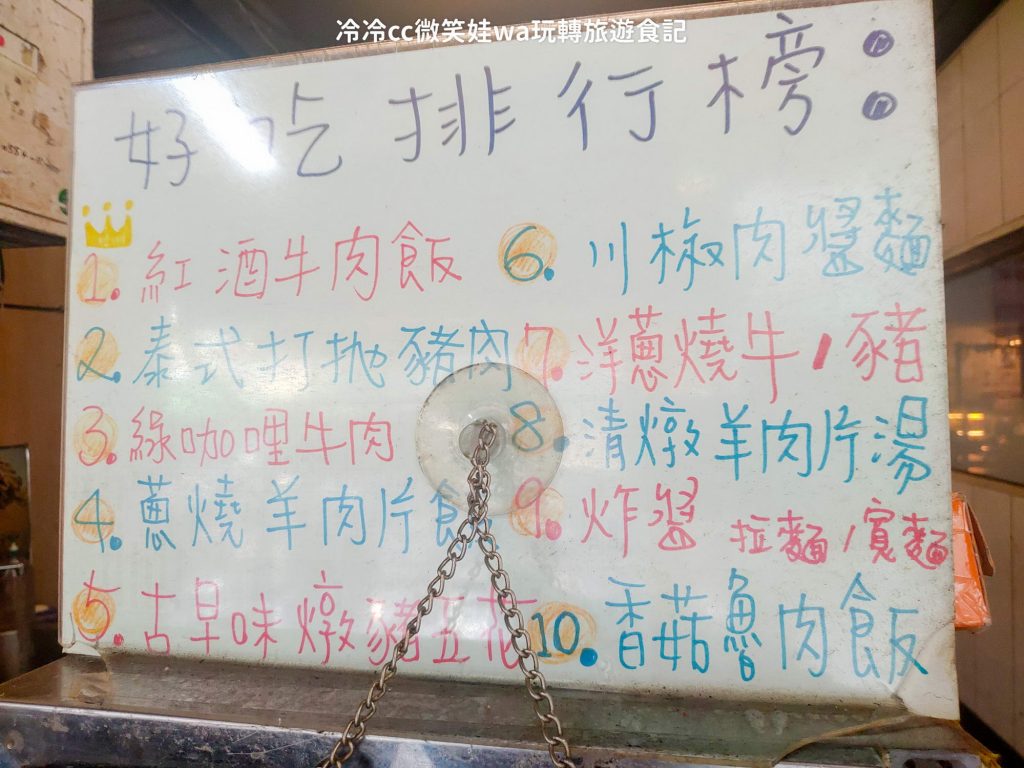 冷冷cc微笑娃wa玩轉旅遊食記
好吃排行榜：
1. 紅酒牛肉飯
2. 泰式打拋豬肉
3. 綠咖哩牛肉
4. 蔥燒羊肉片飯
5. 古早味燉豬五花
6. 川椒肉醬麵
7. 洋蔥燒牛/豬
8. 清燉羊肉片湯
9. 炸醬 拉麵/寬麵
10. 香菇魯肉飯